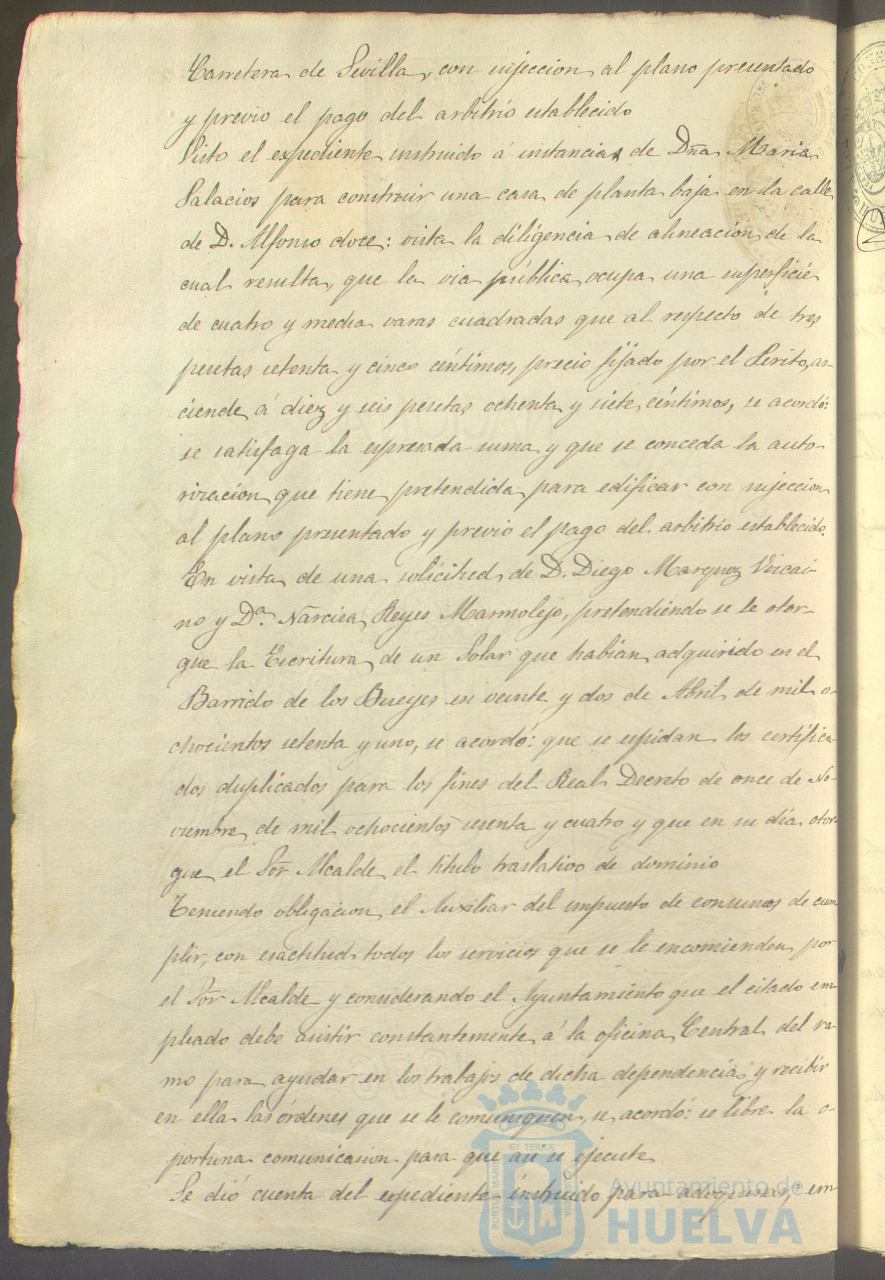 Carretera de Sevilla, con sujeccion al plano presentado
y previo el pago del arbitrio establecido
Visto el expediente instruido á instancias de Dña Maria
Palacios para construir una casa de planta baja en la calle
de D. Alfonso doce: vista la diligencia de alineación de la
cual resulta, que la via publica ocupa una superficie
de cuatro y media varas cuadradas que al respecto de tres
pesetas setenta y cinco céntimos, precio fijado por el Perito, as-
ciende á diez y seis pesetas ochenta y siete céntimos, se acordó:
se satisfaga la espresada suma y que se conceda la auto-
rizacion que tiene pretendida para edificar con sujeccion
al plano presentado y previo el pago del arbitrio establecido.
En vista de una solicitud de D. Diego Marquez Vizcai-
no y Dª. Narcisa Reyes Marmolejo, pretendiendo se le otor-
gue la Escritura de un Solar que habian adquirido en el
Barrido de los Bueyes en veinte y dos de Abril de mil o-
chocientos setenta y uno, se acordó: que se espidan los certifica-
dos duplicados para los fines del Real Decreto de once de No-
viembre de mil ochocientos sesenta y cuatro y que en su dia otor-
gue el Sor Alcalde el titulo traslativo de dominio
Teniendo obligacion el Auxiliar del impuesto de consumos de cum-
plir, con esactitud todos los servicios que se le encomienden por
el Sor Alcalde y considerando el Ayuntamiento que el citado em-
pleado debe asistir constantemente á la oficina Central del ra-
mo para ayudar en los trabajos de dicha dependencia y recibir
en ella las órdenes que se le comuniquen, se acordó: se libre la o-
portuna comunicacion para que asi se ejecute
Se dió cuenta del espediente instruido para adoquinar, em-
ET TERRÆ
PORTUS MARIS
CUSTODIA
Ayuntamiento de
HUELVA